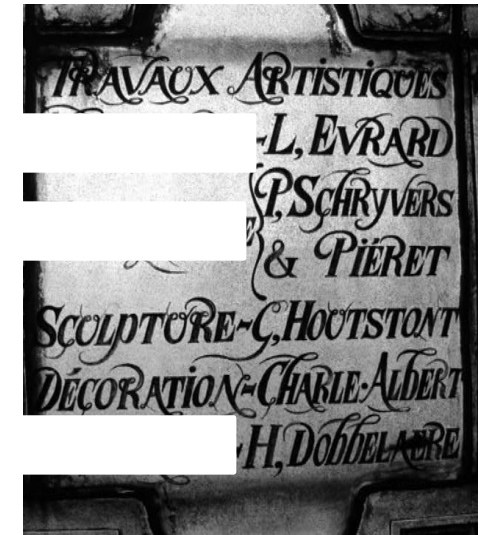 TRAVAUX ARTISTIQUES
-L, EVRARD
P, SCHRYVERS
& PIÉRET
SCULPTURE-G, HOUTSTONT
DÉCORATION-CHARLE-ALBERT
-H, DOBBELAERE